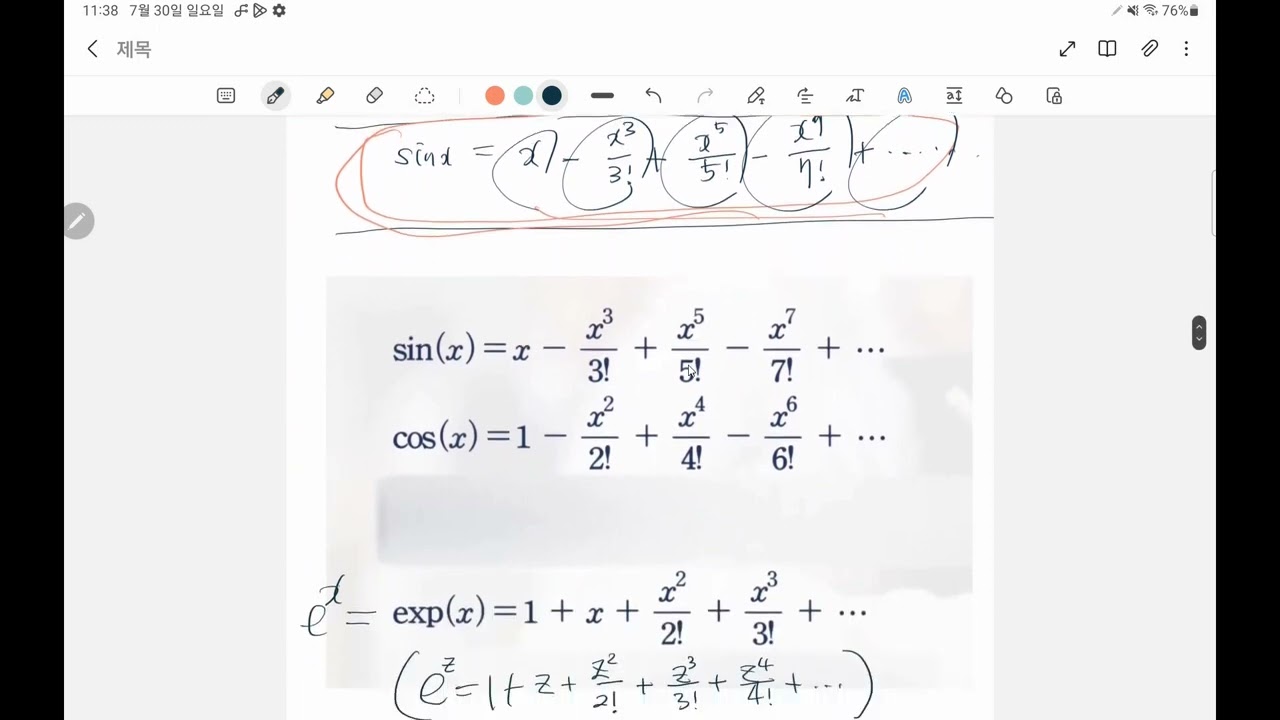 11:38 7월 30일 일요일 76%
제목
sinx = x - x³/3! + x⁵/5! - x⁷/7! + ..... .
sin(x) = x - x³/3! + x⁵/5! - x⁷/7! + ⋯
cos(x) = 1 - x²/2! + x⁴/4! - x⁶/6! + ⋯
eˣ = exp(x) = 1 + x + x²/2! + x³/3! + ⋯
(eᶻ = 1 + z + z²/2! + z³/3! + z⁴/4! + ⋯)